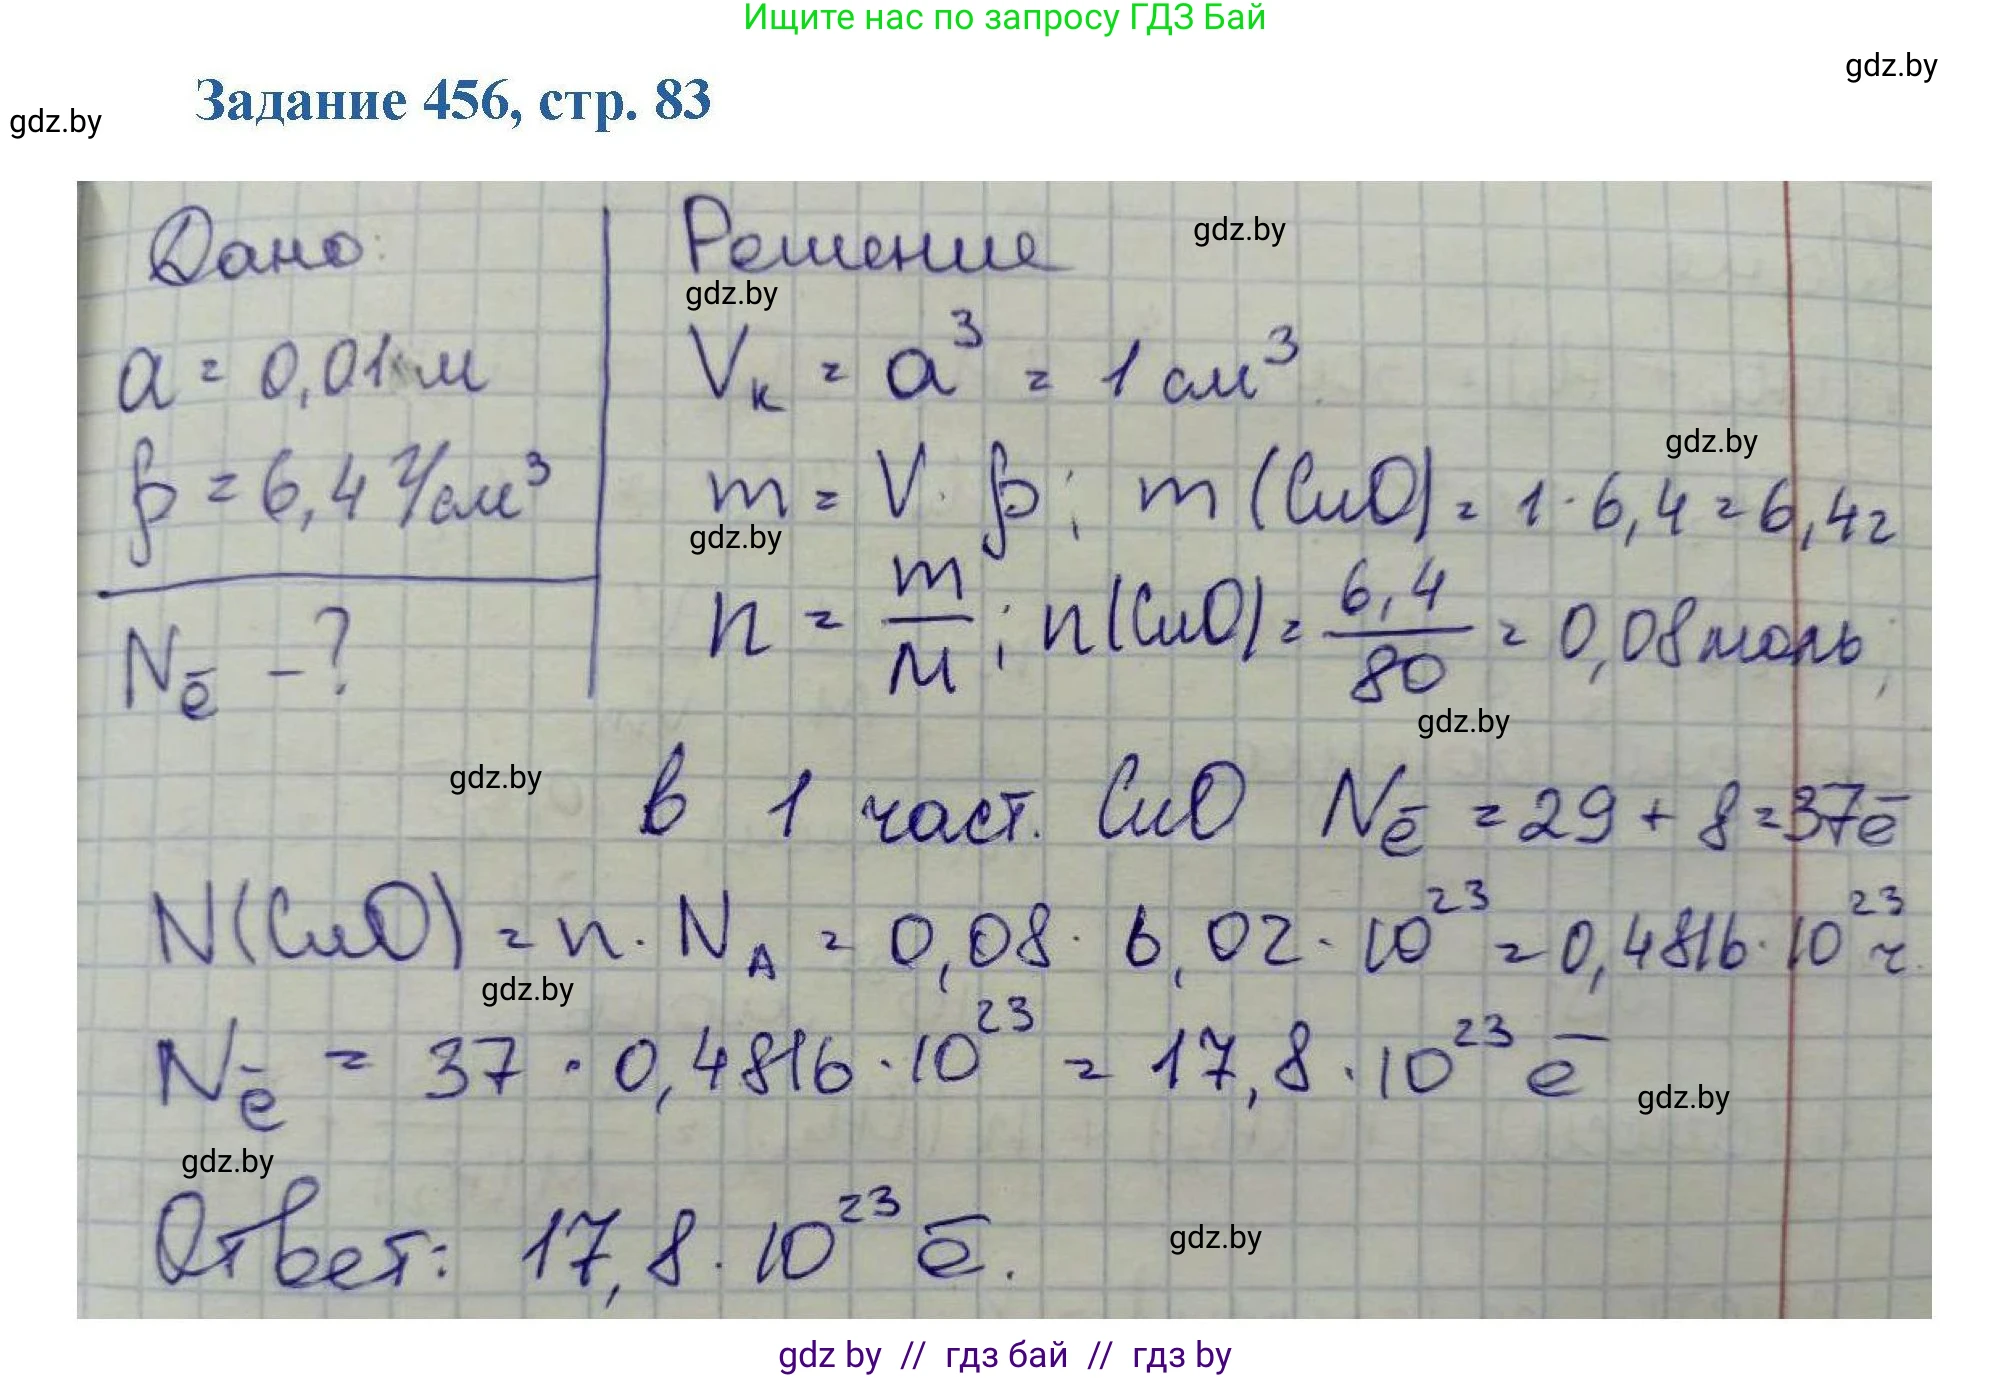 Ищите нас по запросу ГДЗ Бай
gdz.by
Задание 456, стр. 83
gdz.by
Дано:
Решение
gdz.by
gdz.by
a = 0,01 м
Vк = a³ = 1 см³
gdz.by
ρ = 6,4 г/см³
m = V · ρ; m (CuO) = 1 · 6,4 = 6,4 г
gdz.by
n = m/M; n(CuO) = 6,4/80 = 0,08 моль;
Nē - ?
gdz.by
gdz.by
в 1 част. CuO Nē = 29 + 8 = 37ē
N(CuO) = n · NA = 0,08 · 6,02 · 10²³ = 0,4816 · 10²³ ч.
gdz.by
Nē = 37 · 0,4816 · 10²³ = 17,8 · 10²³ ē
gdz.by
gdz.by
Ответ: 17,8 · 10²³ ē.
gdz.by
gdz by // гдз бай // гдз by